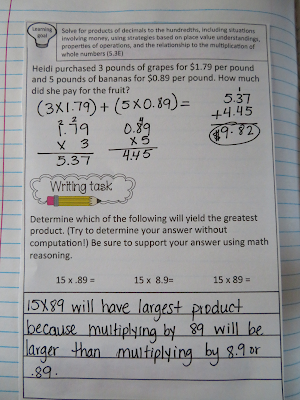 Learning goal
Solve for products of decimals to the hundredths, including situations
involving money, using strategies based on place value understandings,
properties of operations, and the relationship to the multiplication of
whole numbers (5.3E)
Heidi purchased 3 pounds of grapes for $1.79 per pound
and 5 pounds of bananas for $0.89 per pound. How much
did she pay for the fruit?
(3X1.79) + (5X0.89)=
2 2
1.79
X 3
5.37
4
0.89
X5
4.45
1
5.37
+4.45
$9.82
Writing task
Determine which of the following will yield the greatest
product. (Try to determine your answer without
computation!) Be sure to support your answer using math
reasoning.
15 x .89 = 15 x 8.9= 15 x 89 =
15X89 will have largest product
because multiplying by 89 will be
larger than multiplying by 8.9 or
.89.